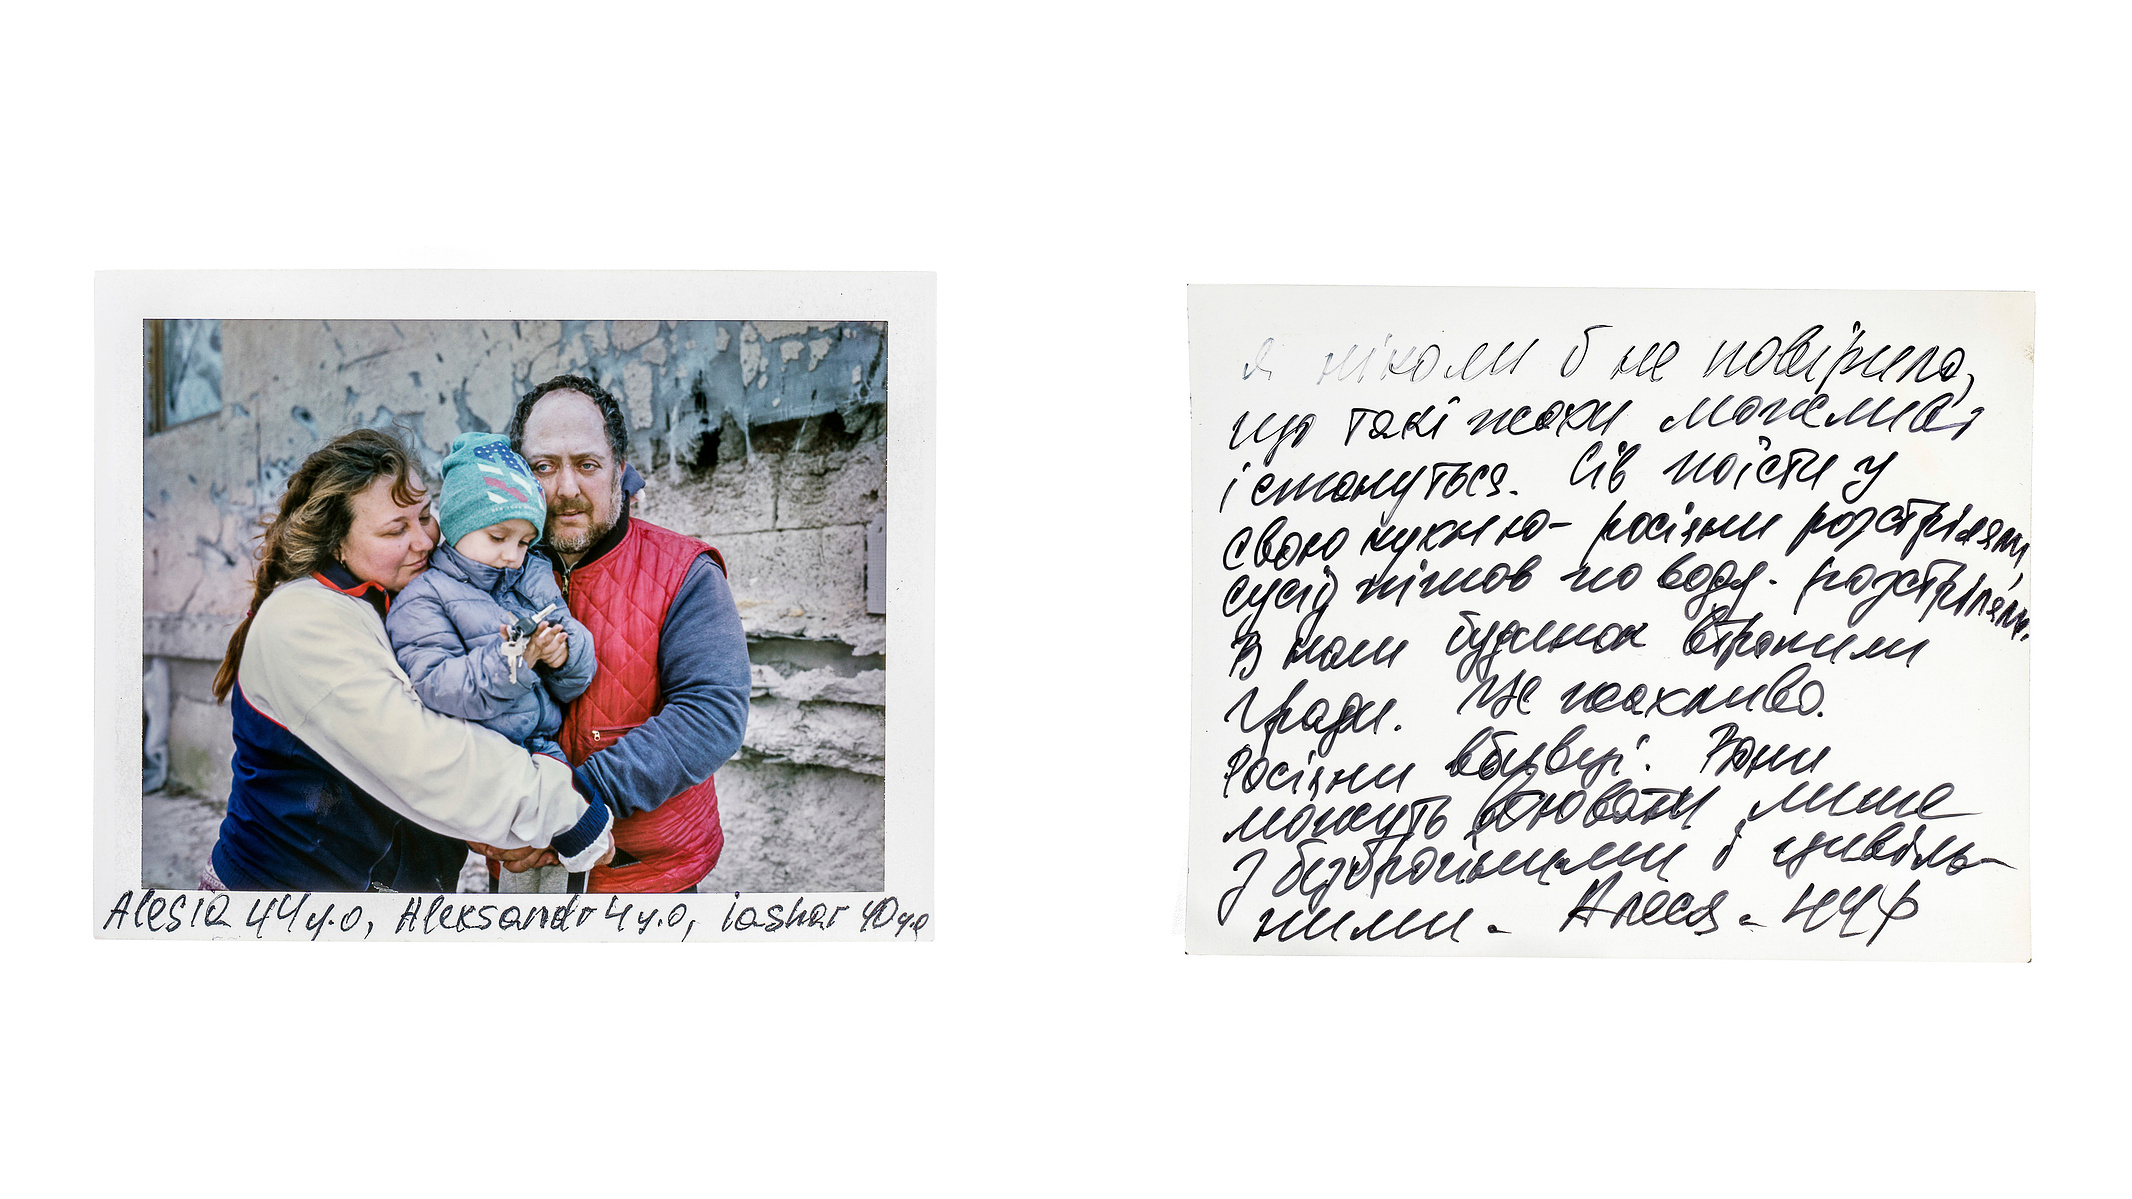 Alesia 44 y.o, Aleksandr 4 y.o, iashar 40 y.o
я ніколи б не повірила,
що такі жахи можливі
і стануться. Сів поїсти у
свою кухню - росіяни розстріляли,
сусід пішов по воду - розстріляли.
В наш будинок втрапили
Гради. Це жахливо.
Росіяни вбивці. Вони
можуть воювати лише
з беззбройними і цивіль-
ними. Алеся -